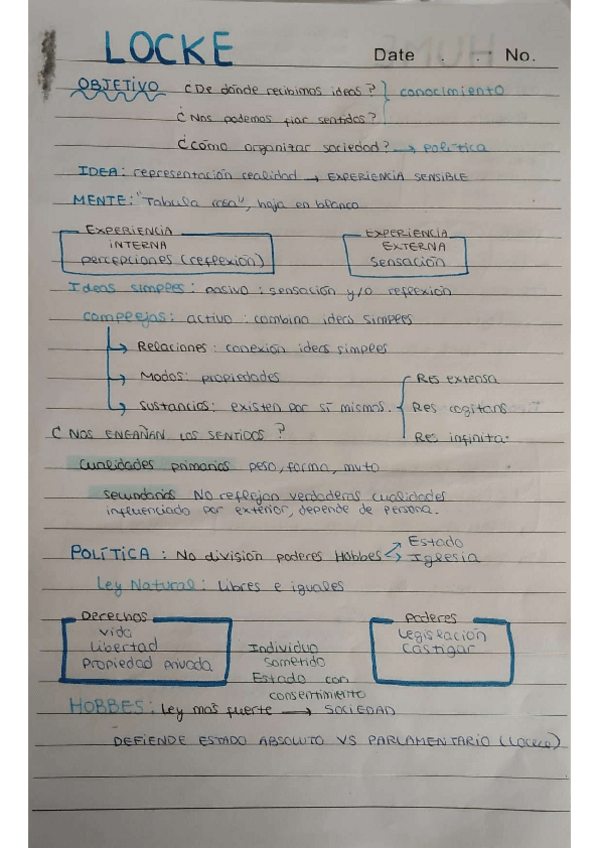 LOCKE
Date . . No.
OBJETIVO ¿De dónde recibimos ideas? } conocimiento
¿Nos podemos fiar sentidos?
¿Cómo organizar sociedad? → Política
IDEA: representación realidad → EXPERIENCIA SENSIBLE
MENTE: "Tabula rosa", hoja en blanco
EXPERIENCIA INTERNA
percepciones (reflexión)
EXPERIENCIA EXTERNA
sensación
Ideas simples: pasivo: sensación y/o reflexión
complejas: activo: combina ideas simples
→ Relaciones: conexión ideas simples
→ Modos: propiedades
→ Sustancias: existen por sí mismos.
Res extensa
Res cogitans
Res infinita
¿NOS ENGAÑAN LOS SENTIDOS?
cualidades primarias peso, forma,
secundarias No reflejan verdaderas cualidades
influenciado por exterior, depende de persona.
POLÍTICA: No división poderes Hobbes
Estado
Iglesia
Ley Natural: Libres e iguales
Derechos
vida
Libertad
Propiedad privada
Individuo
sometido
Estado con
consentimiento
Poderes
Legislación
Castigar
HOBBES: Ley mas fuerte → SOCIEDAD
DEFIENDE ESTADO ABSOLUTO VS PARLAMENTARIO (Locke)